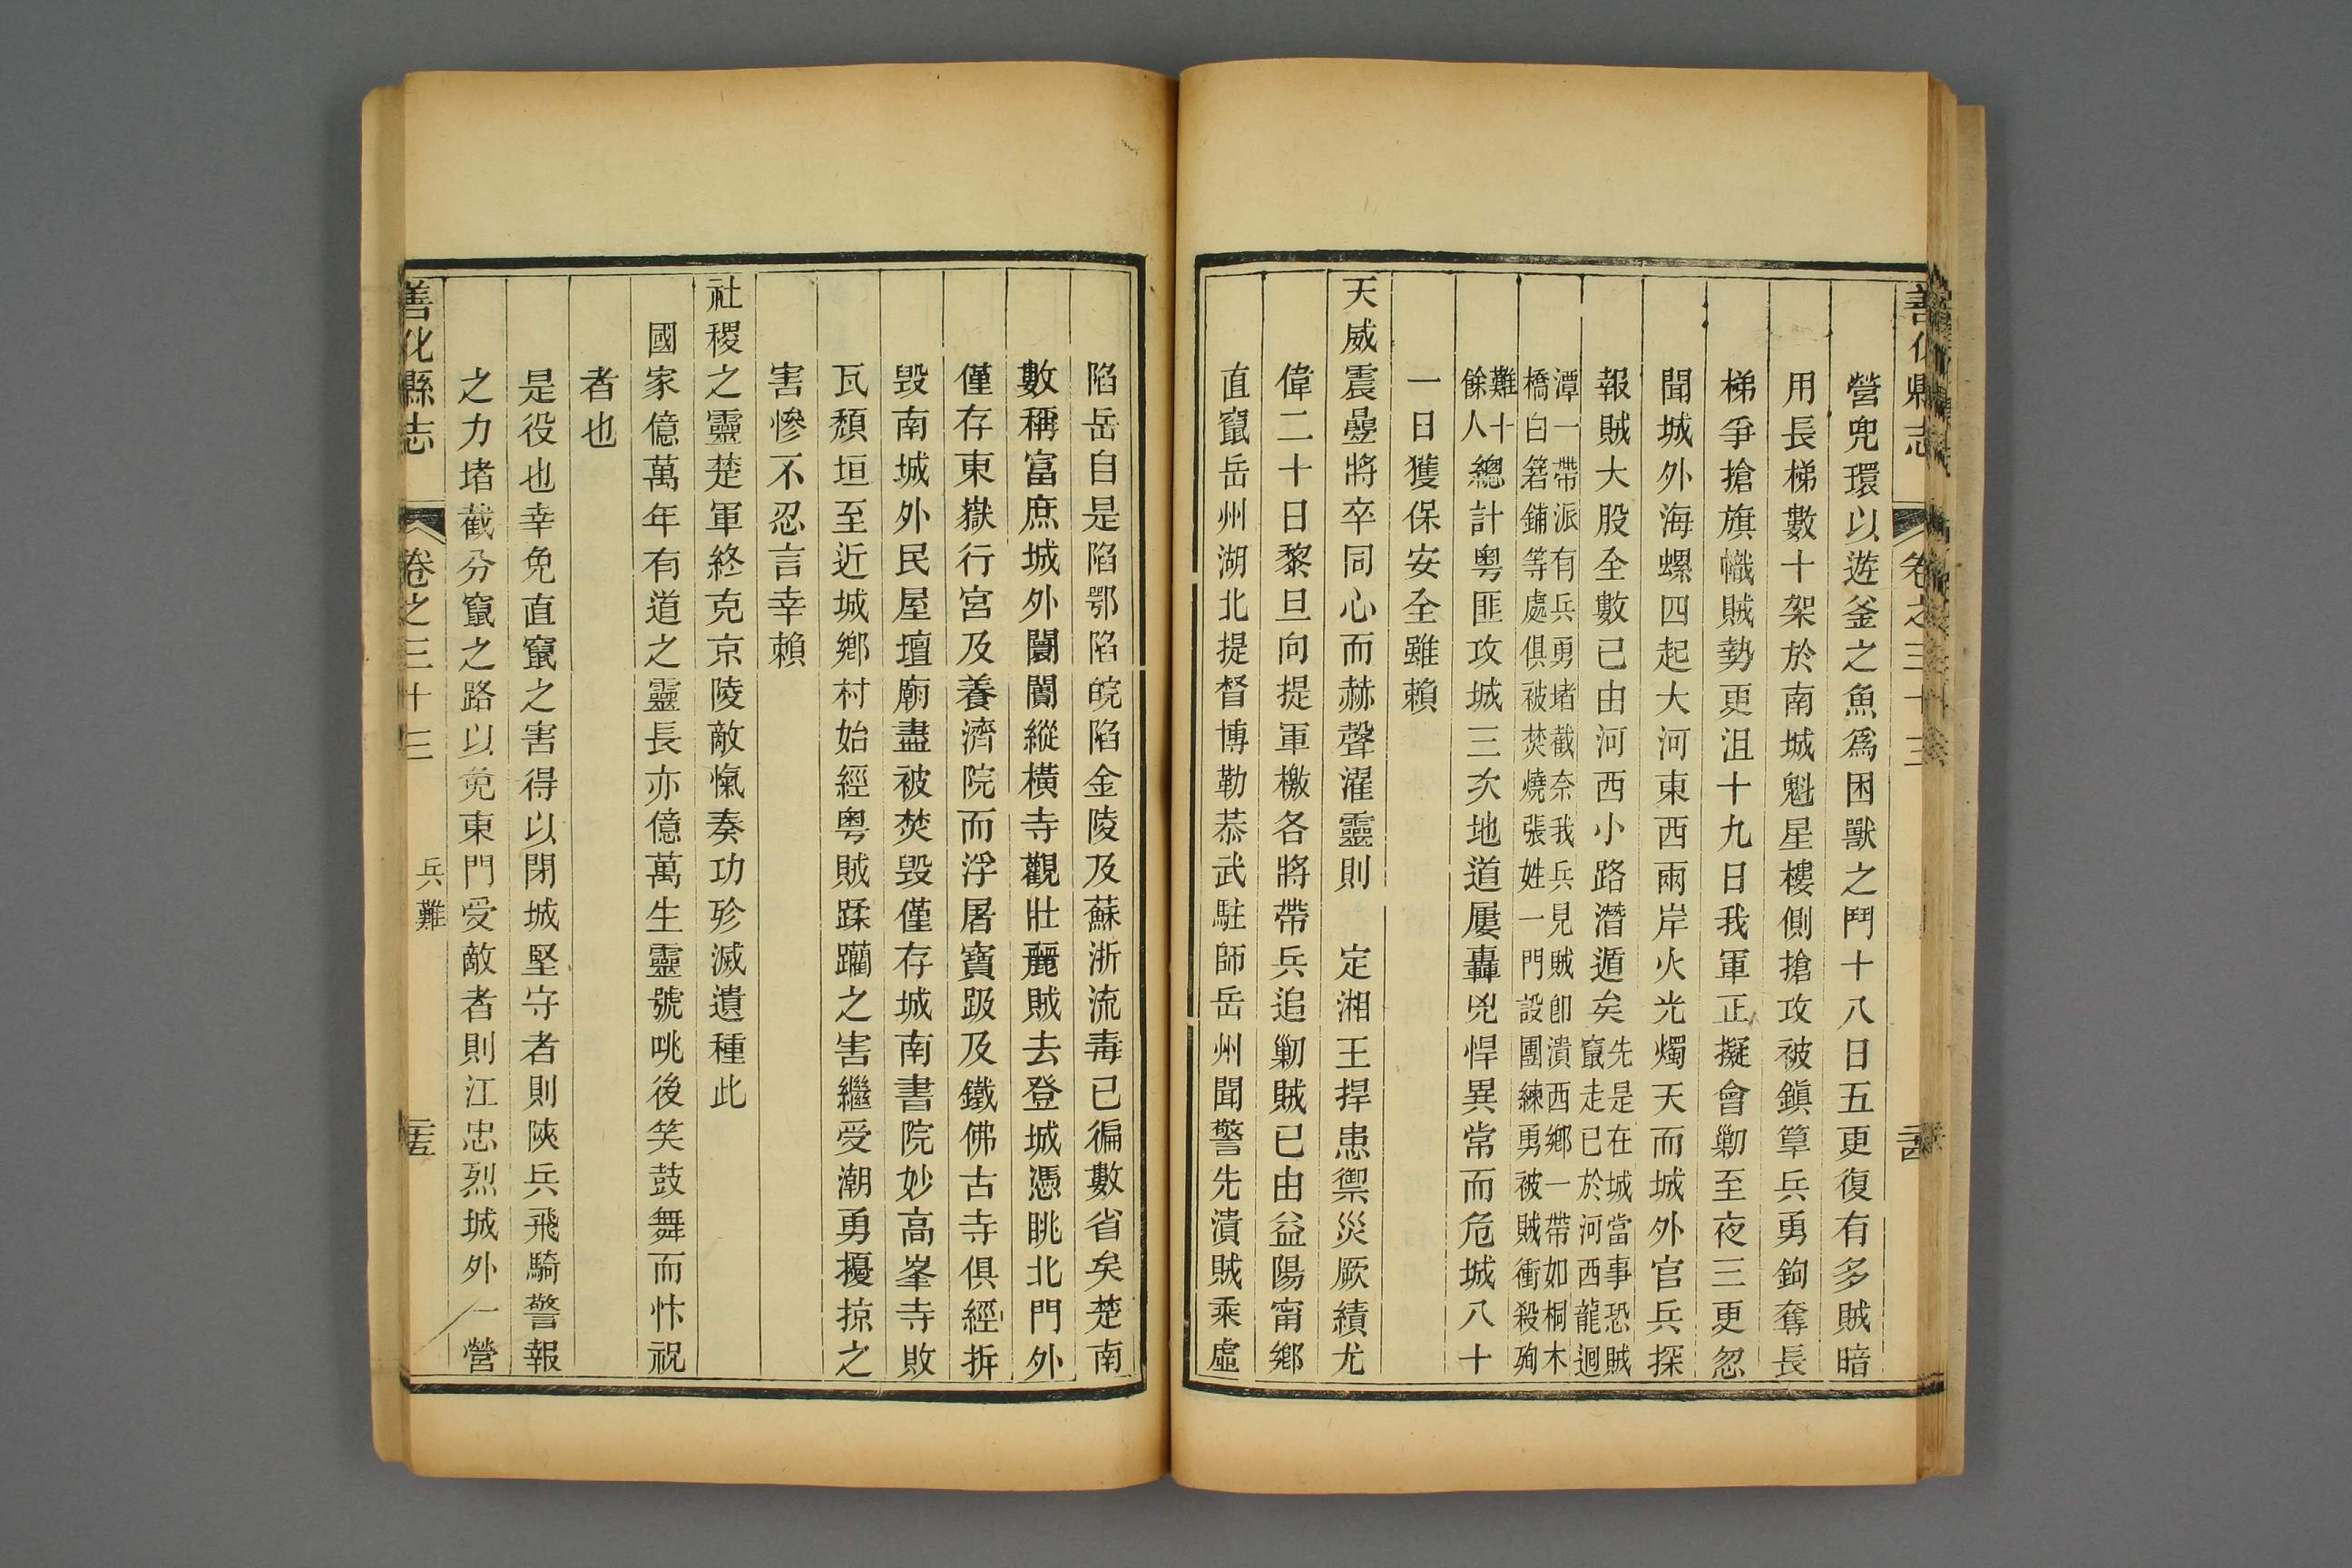 善化縣志 卷之三十三
營兜環以遊釜之魚爲困獸之鬥十八日五更復有多賊暗
用長梯數十架於南城魁星樓側搶攻被鎭筸兵勇鉤奪長
梯爭搶旗幟賊勢更沮十九日我軍正擬會勦至夜三更忽
聞城外海螺四起大河東西兩岸火光燭天而城外官兵探
報賊大股全數已由河西小路潛遁矣先是在城當事恐賊竄走已於河西龍迴
潭一帶派有兵勇堵截奈我兵見賊卽潰西鄉一帶如桐木橋白箬鋪等處俱被焚燒張姓一門設團練勇被賊衝殺殉
難十餘人總計粵匪攻城三次地道屢轟兇悍異常而危城八十
一日獲保安全雖賴
天威震疊將卒同心而赫聲濯靈則 定湘王捍患禦災厥績尤
偉二十日黎旦向提軍檄各將帶兵追勦賊已由益陽甯鄉
直竄岳州湖北提督博勒恭武駐師岳州聞警先潰賊乘虛
陷岳自是陷鄂陷皖陷金陵及蘇浙流毒已徧數省矣楚南
數稱富庶城外闤闠縱橫寺觀壯麗賊去登城憑眺北門外
僅存東嶽行宮及養濟院而浮屠寶趿及鐵佛古寺俱經拆
毀南城外民屋壇廟盡被焚毀僅存城南書院妙高峯寺敗
瓦頹垣至近城鄉村始經粵賊蹂躪之害繼受潮勇擾掠之
害慘不忍言幸賴
社稷之靈楚軍終克京陵敵愾奏功殄滅遺種此
國家億萬年有道之靈長亦億萬生靈號咷後笑鼓舞而忭祝
者也
是役也幸免直竄之害得以閉城堅守者則陝兵飛騎警報
之力堵截分竄之路以免東門受敵者則江忠烈城外一營
善化縣志 卷之三十三 兵難 二十五